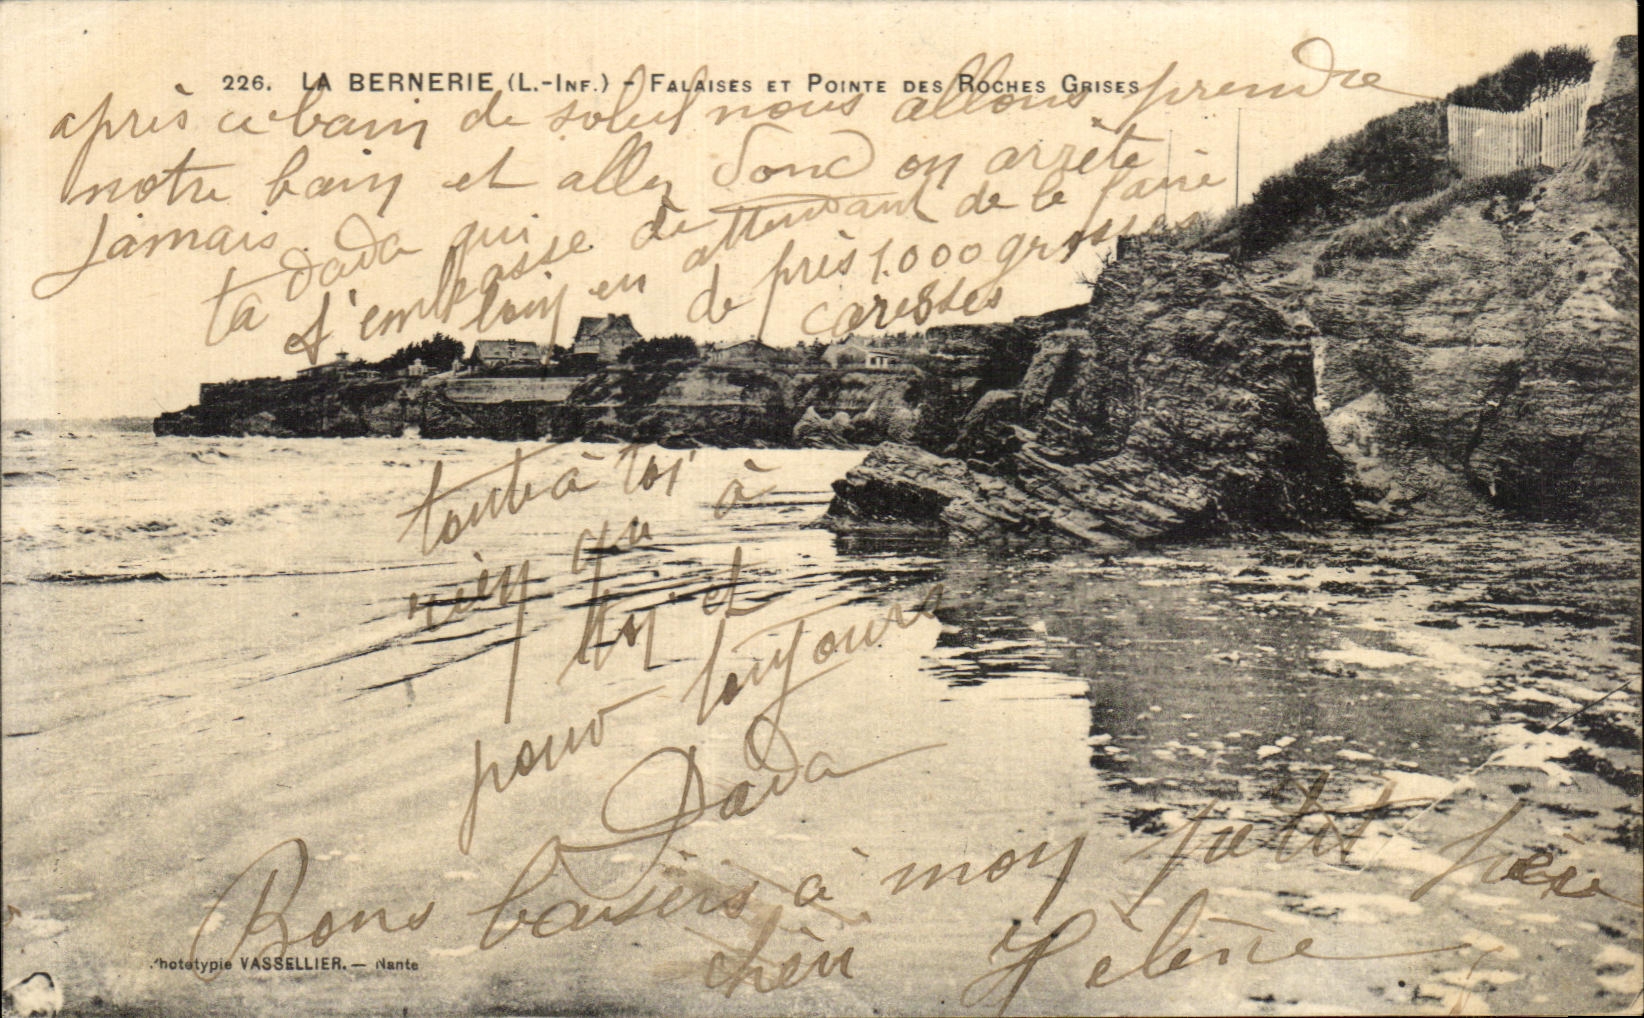 226. LA BERNERIE (L.-INF.) - FALAISES ET POINTE DES ROCHES GRISES
après ce bain de soleil nous allons prendre
notre bain et allez donc on arrête
jamais.
ta Dada qui
t'embrasse de
loin en attendant de le faire
de près 1.000 grosses
caresses
toute à toi
rien qu à
toi et
pour toujours
Dada
Bons baisers à mon petit père
chéri Hélène
Phototypie VASSELLIER. — Nante